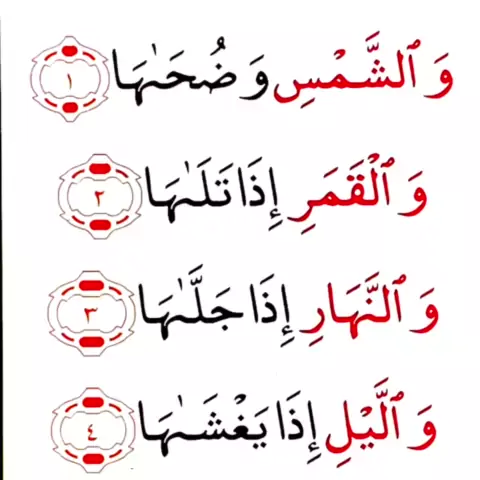 وَٱلشَّمْسِ وَضُحَىٰهَا ١
وَٱلْقَمَرِ إِذَا تَلَىٰهَا ٢
وَٱلنَّهَارِ إِذَا جَلَّىٰهَا ٣
وَٱلَّيْلِ إِذَا يَغْشَىٰهَا ٤